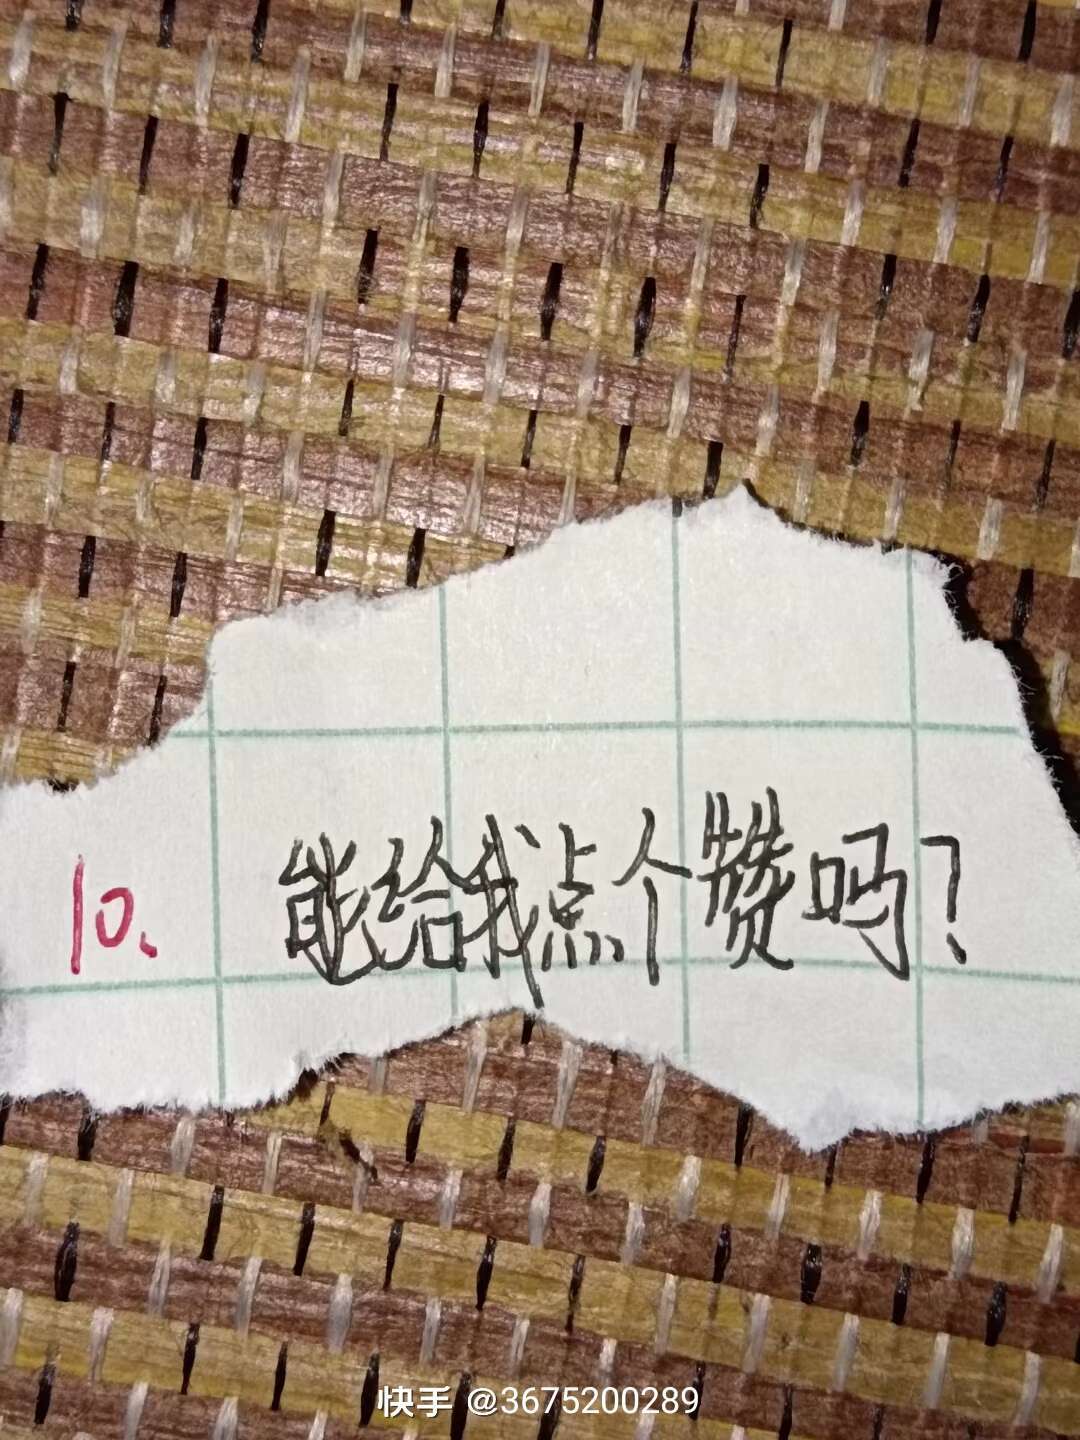 10、能给我点个赞吗？
快手 @3675200289